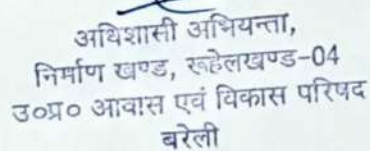 अधिशासी अभियन्ता,
निर्माण खण्ड, रूहेलखण्ड-04
उ०प्र० आवास एवं विकास परिषद
बरेली